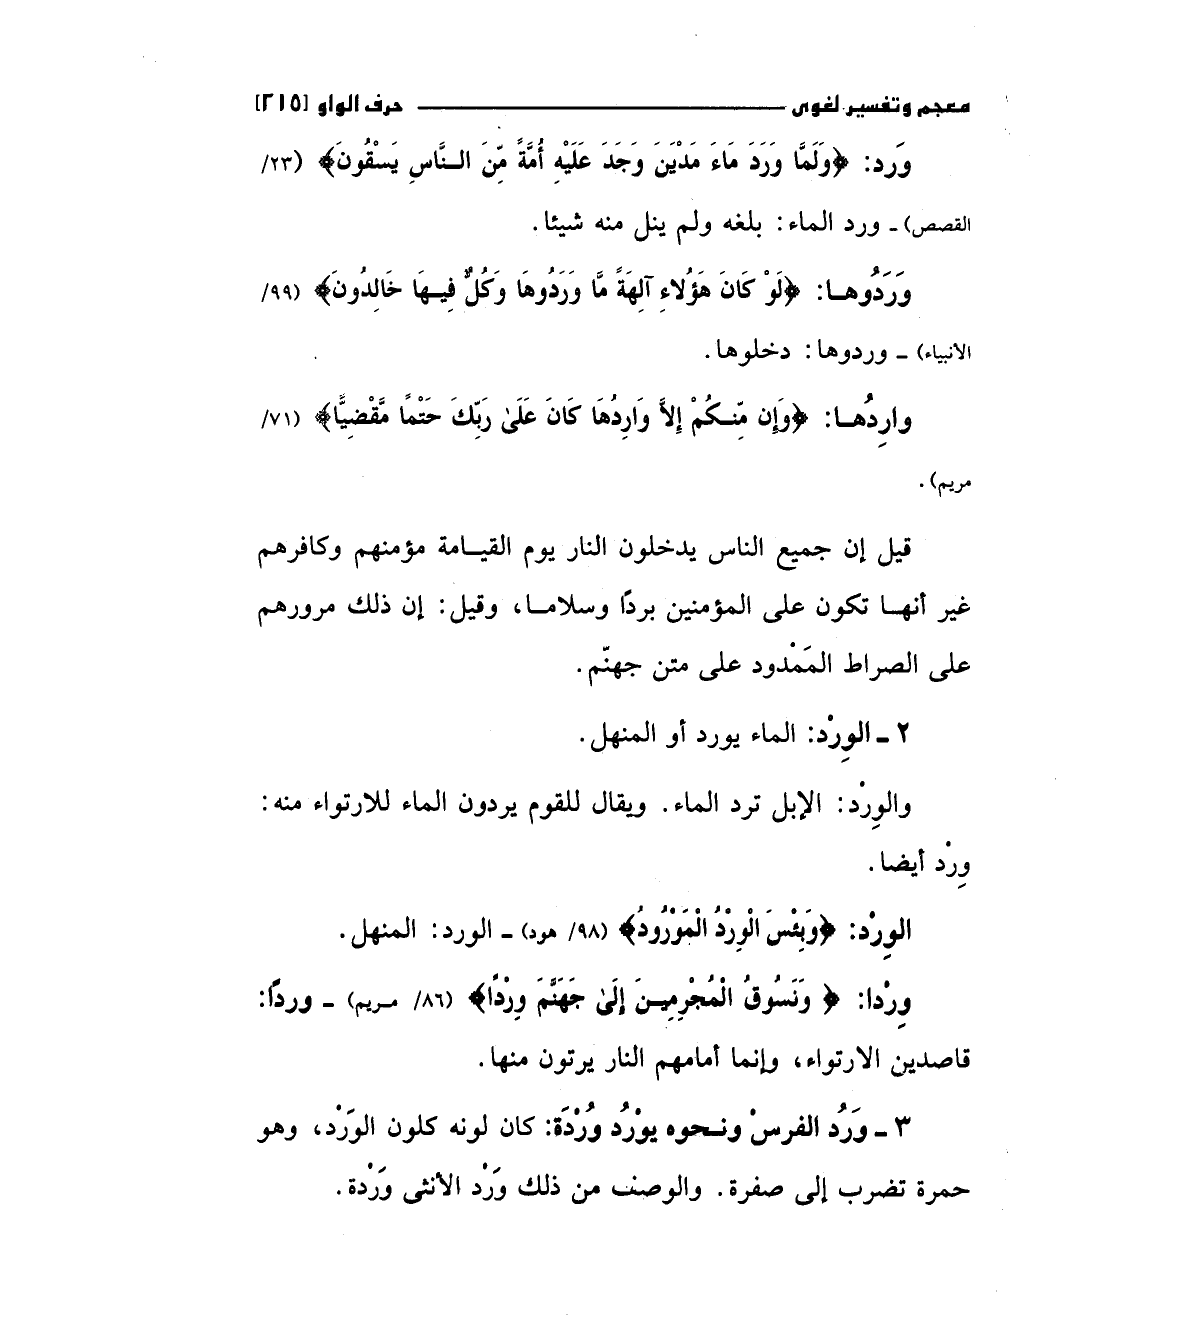 معجم وتفسير لغوى حرف الواو [٢١٥]
وَرد: ﴿وَلَمَّا وَرَدَ مَاءَ مَدْيَنَ وَجَدَ عَلَيْهِ أُمَّةً مِّنَ النَّاسِ يَسْقُونَ﴾ (٢٣/
القصص) ـ ورد الماء: بلغه ولم ينل منه شيئا.
وَرَدُوهـا: ﴿لَوْ كَانَ هَؤُلاءِ آلِهَةً مَّا وَرَدُوهَا وَكُلٌّ فِيهَا خَالِدُونَ﴾ (٩٩/
الأنبياء) ـ وردوها: دخلوها.
وارِدُهـا: ﴿وَإِن مِّنكُمْ إِلاَّ وَارِدُهَا كَانَ عَلَىٰ رَبِّكَ حَتْمًا مَّقْضِيًّا﴾ (٧١/
مريم).
قيل إن جميع الناس يدخلون النار يوم القيامة مؤمنهم وكافرهم
غير أنها تكون على المؤمنين بردًا وسلاما، وقيل: إن ذلك مرورهم
على الصراط المَمْدود على متن جهنّم.
٢ ـ الوِرْد: الماء يورد أو المنهل.
والوِرْد: الإبل ترد الماء. ويقال للقوم يردون الماء للارتواء منه:
وِرْد أيضا.
الوِرْد: ﴿وَبِئْسَ الْوِرْدُ الْمَوْرُودُ﴾ (٩٨/ هود) ـ الورد: المنهل.
وِرْدا: ﴿ وَنَسُوقُ الْمُجْرِمِينَ إِلَىٰ جَهَنَّمَ وِرْدًا﴾ (٨٦/ مريم) ـ وردًا:
قاصدين الارتواء، وإنما أمامهم النار يرتون منها.
٣ ـ وَرَُد الفرسْ ونحوه يوْرُد وُرْدَة: كان لونه كلون الوَرْد، وهو
حمرة تضرب إلى صفرة. والوصف من ذلك وَرْد الأنثى وَرْدة.